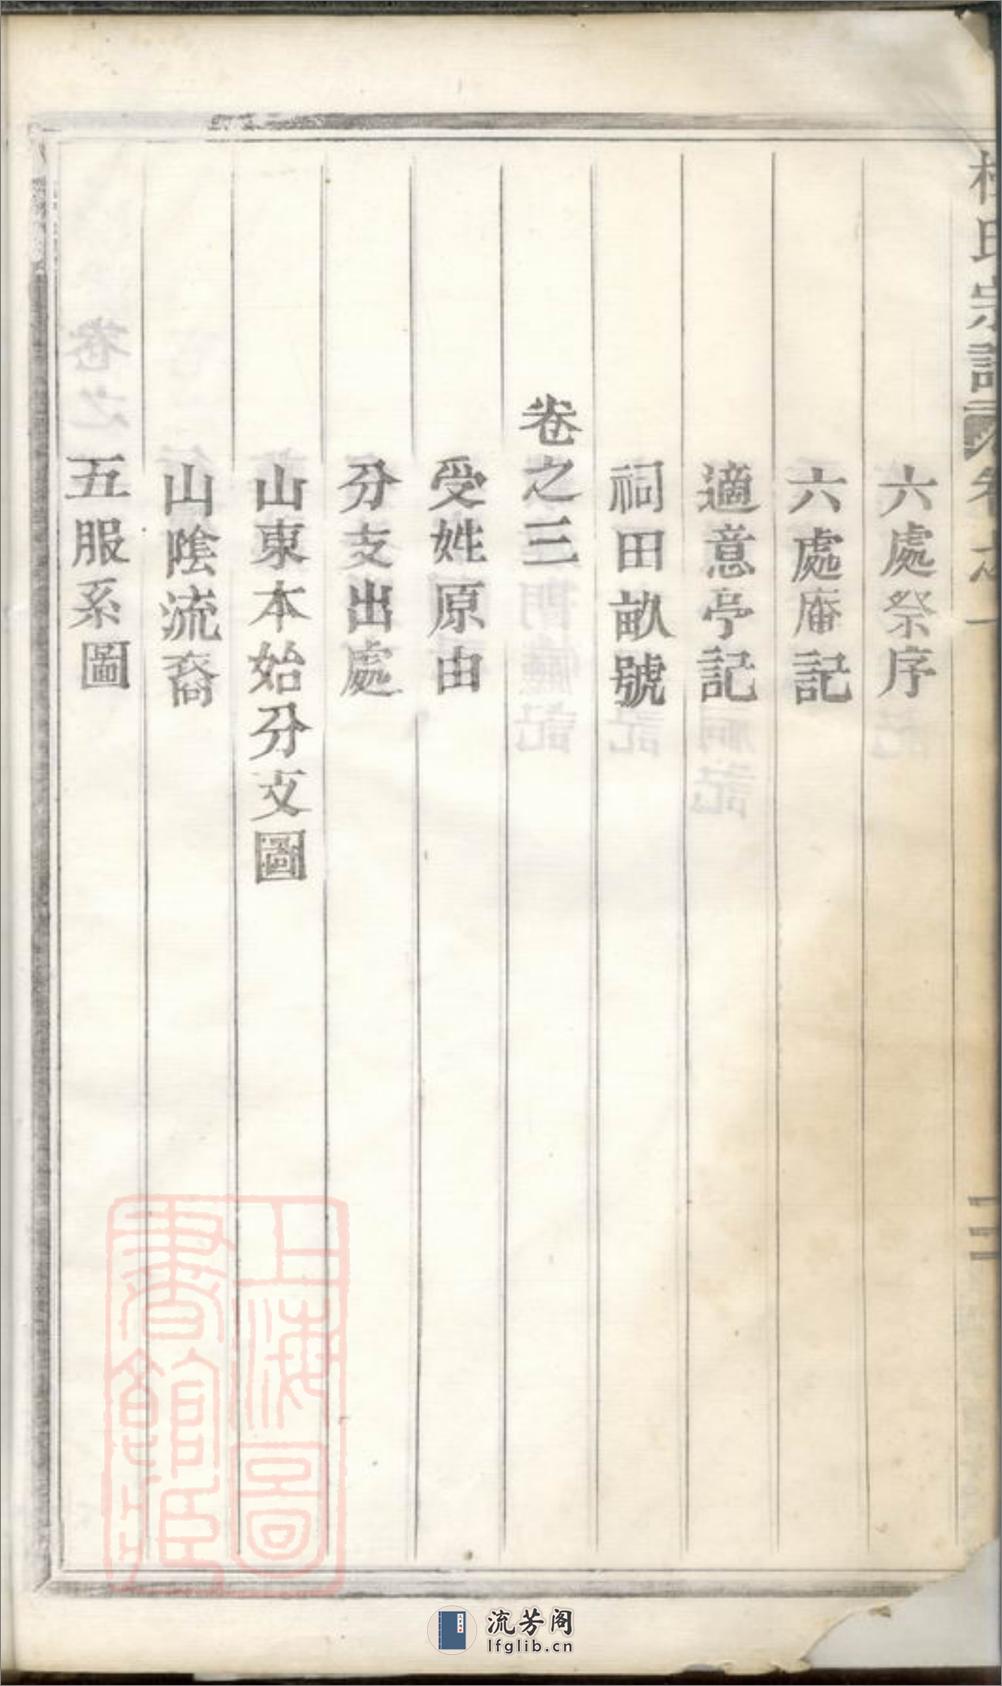 氏宗譜
卷之一
六處祭序
六處庵記
適意亭記
祠田畝號
卷之三
受姓原由
分支出處
山東本始分支圖
山陰流裔
五服系圖
上海圖
書館藏
流芳阁
lfglib.cn